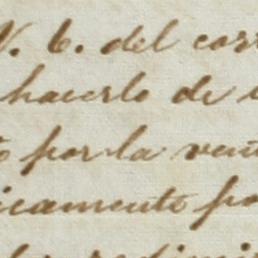 V. 6. del corr
hacerlo de
por la vent
icamente po